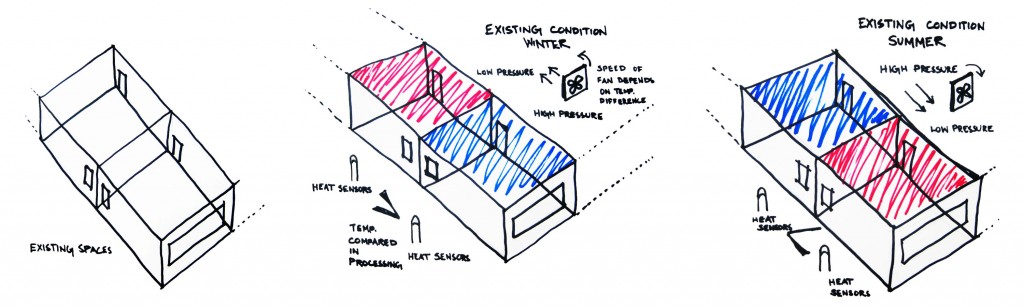 EXISTING SPACES
EXISTING CONDITION
WINTER
LOW PRESSURE
SPEED OF
FAN DEPENDS
ON TEMP.
DIFFERENCE
HIGH PRESSURE
HEAT SENSORS
TEMP.
COMPARED
IN
PROCESSING
HEAT SENSORS
EXISTING CONDITION
SUMMER
HIGH PRESSURE
LOW PRESSURE
HEAT
SENSORS
HEAT
SENSORS